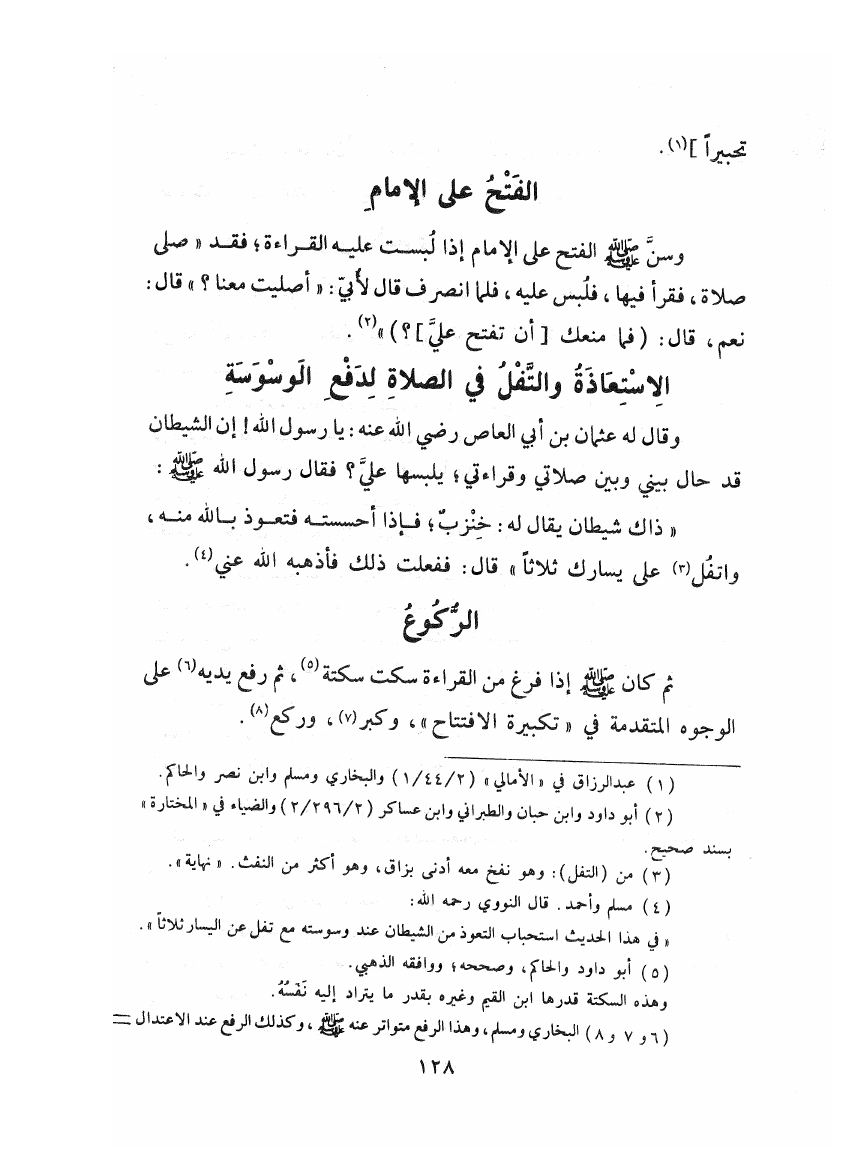 تحبيراً ](١).
الفَتْحُ على الإمامِ
وسنَّ ﷺ الفتح على الإمام إذا لُبست عليه القراءة؛ فقد « صلى
صلاة، فقرأ فيها، فلُبس عليه، فلما انصرف قال لأُبيّ: « أصليت معنا؟ » قال:
نعم، قال: (فما منعك [أن تفتح عليَّ]؟)»(٢).
الاِسْتِعَاذَةُ والتَّفْلُ في الصلاةِ لِدَفْعِ الوَسْوَسَةِ
وقال له عثمان بن أبي العاص رضي الله عنه: يا رسول الله! إن الشيطان
قد حال بيني وبين صلاتي وقراءتي؛ يلبسها عليَّ؟ فقال رسول الله ﷺ:
« ذاك شيطان يقال له: خِنْزبٌ؛ فإذا أحسسته فتعوذ بالله منه،
واتفُل(٣) على يسارك ثلاثاً » قال: ففعلت ذلك فأذهبه الله عني(٤).
الرُّكُوعُ
ثم كان ﷺ إذا فرغ من القراءة سكت سكتة(٥)، ثم رفع يديه(٦) على
الوجوه المتقدمة في « تكبيرة الافتتاح »، وكبر(٧)، وركع(٨).
(١) عبدالرزاق في « الأمالي » (١/٤٤/٢) والبخاري ومسلم وابن نصر والحاكم.
(٢) أبو داود وابن حبان والطبراني وابن عساكر (٢/٢٩٦/٢) والضياء في « المختارة »
بسند صحيح.
(٣) من (التفل): وهو نفخ معه أدنى بزاق، وهو أكثر من النفث. « نهاية ».
(٤) مسلم وأحمد. قال النووي رحمه الله:
« في هذا الحديث استحباب التعوذ من الشيطان عند وسوسته مع تفل عن اليسار ثلاثاً ».
(٥) أبو داود والحاكم، وصححه؛ ووافقه الذهبي.
وهذه السكتة قدرها ابن القيم وغيره بقدر ما يتراد إليه نَفَسُهُ.
(٦ و ٧ و ٨) البخاري ومسلم، وهذا الرفع متواتر عنه ﷺ، وكذلك الرفع عند الاعتدال =
١٢٨